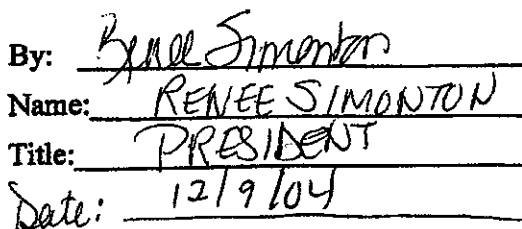 By: Renee Simonton
Name: RENEE SIMONTON
Title: PRESIDENT
Date: 12/9/04